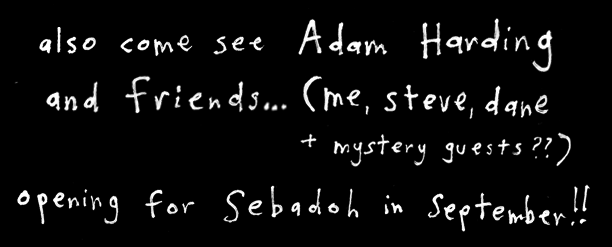 also come see Adam Harding
and friends... (me, steve, dane
+ mystery guests??)
opening for Sebadoh in September!!